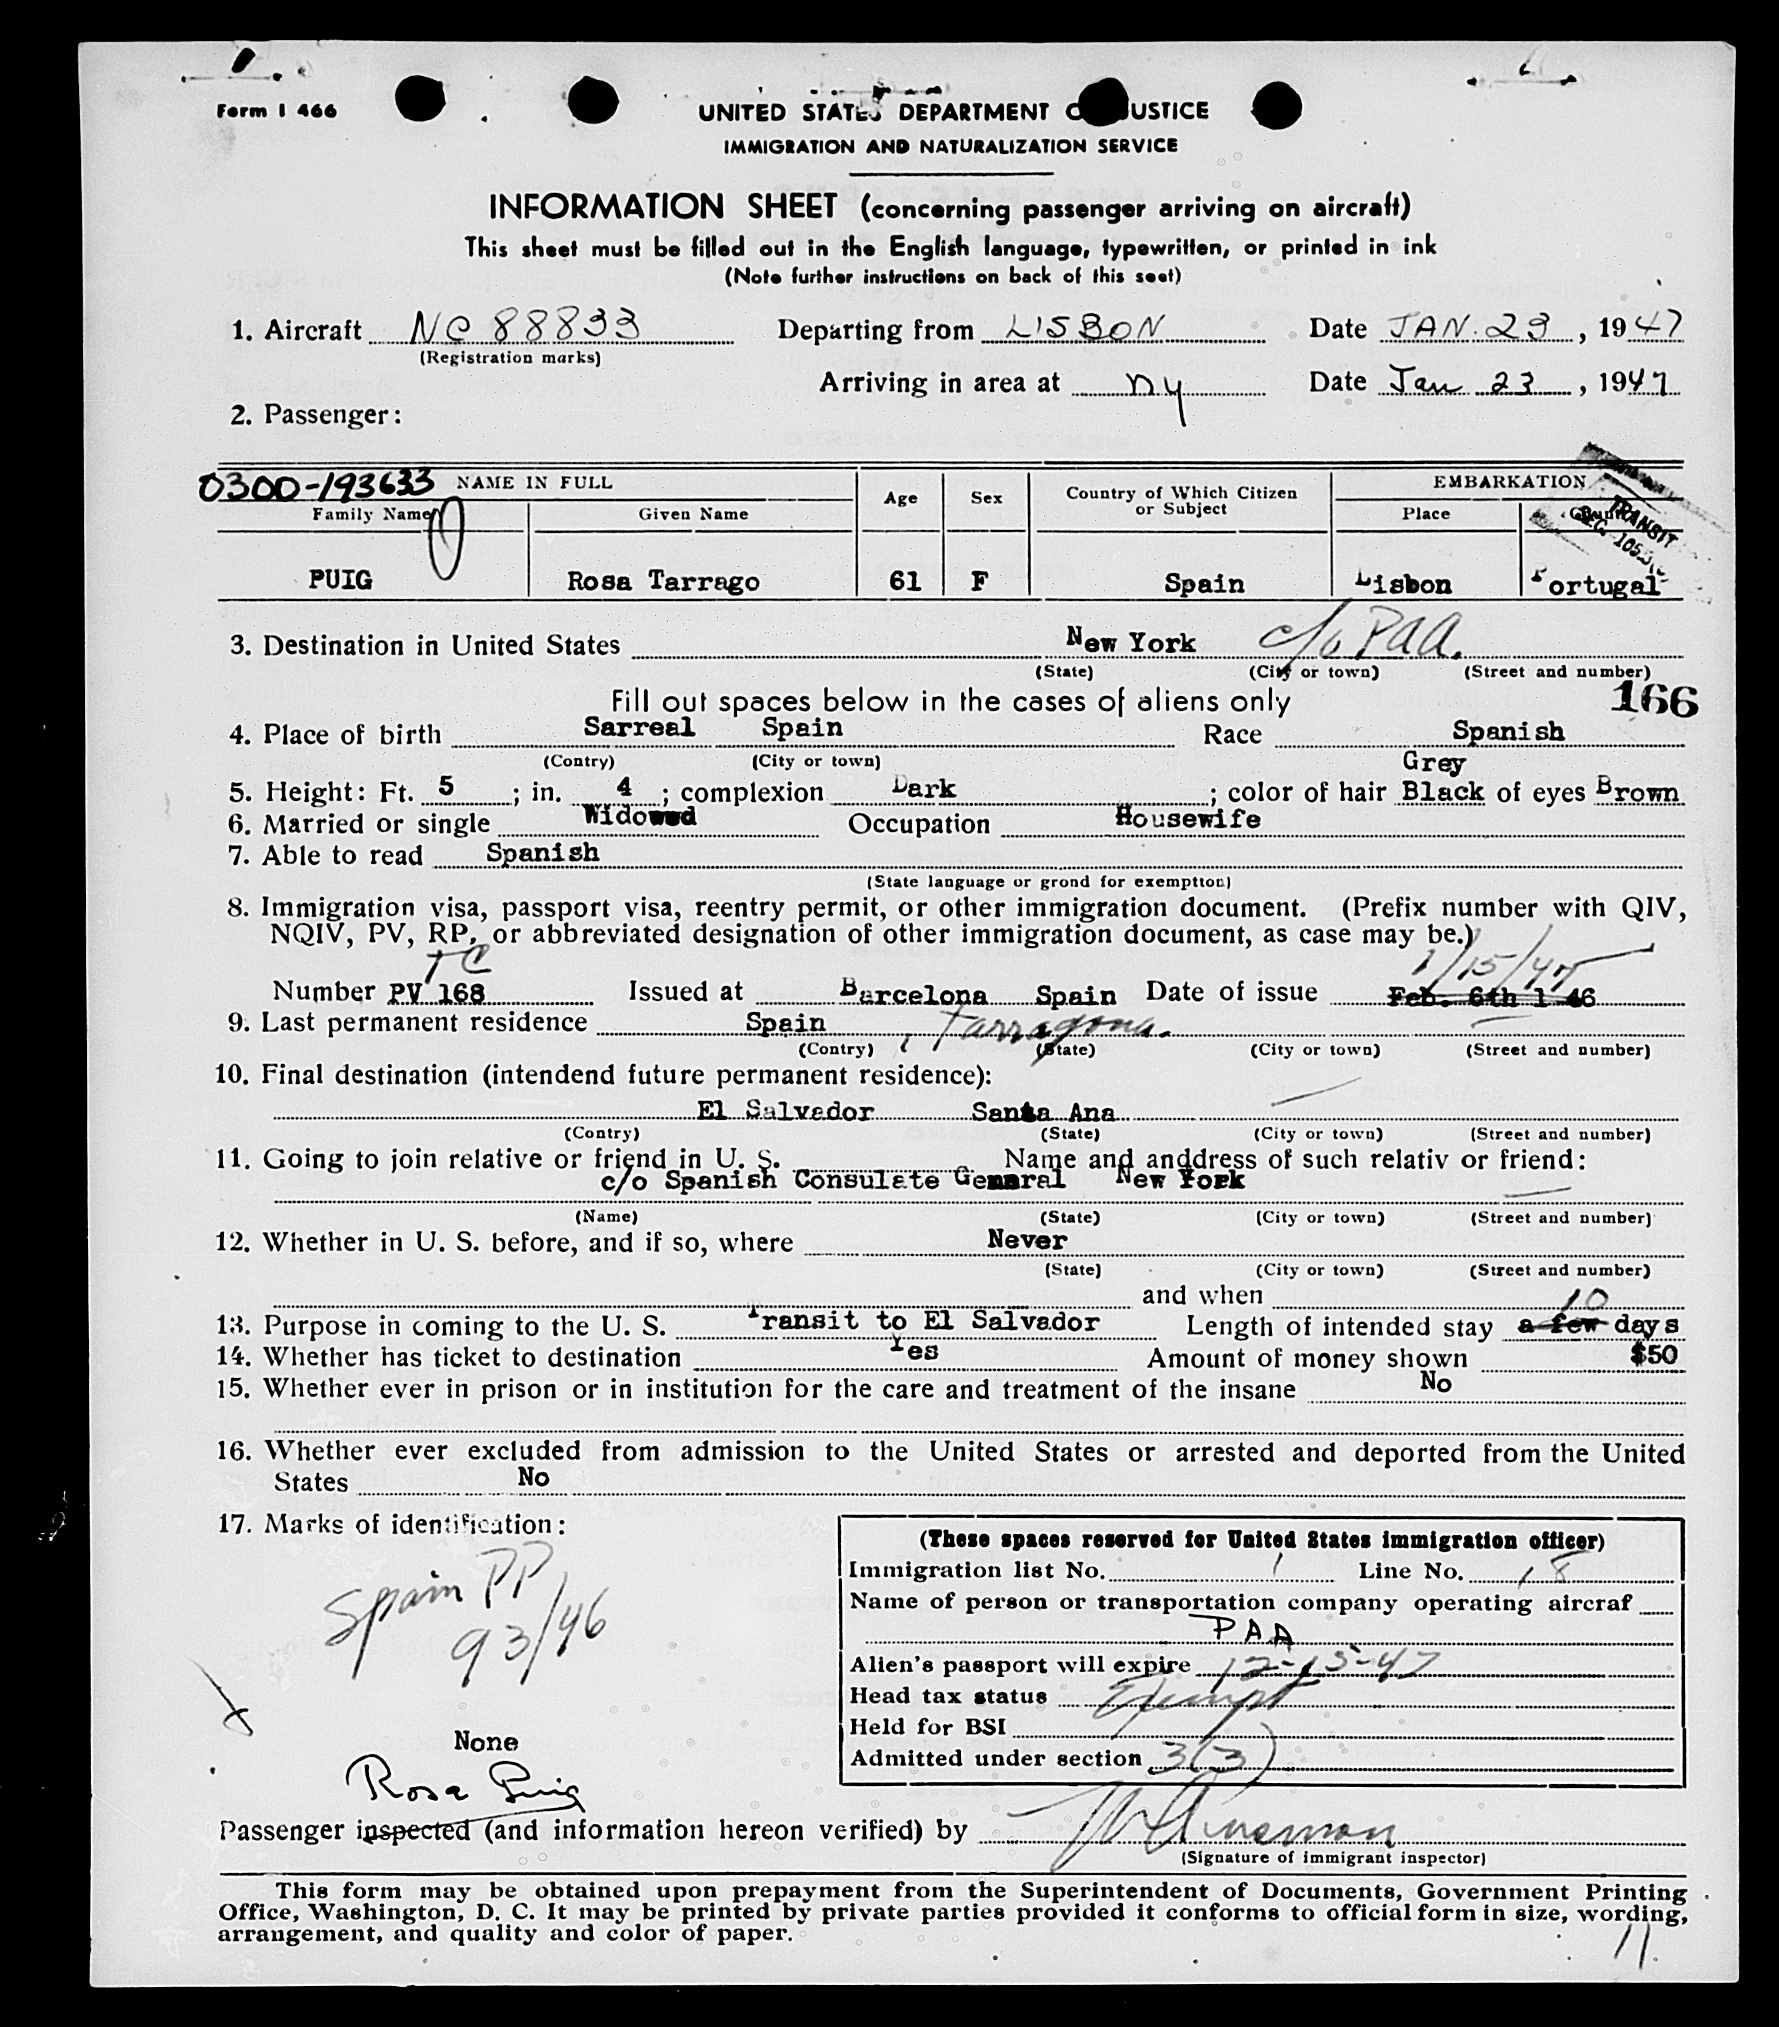 Form I 466
UNITED STATES DEPARTMENT OF JUSTICE
IMMIGRATION AND NATURALIZATION SERVICE
INFORMATION SHEET (concerning passenger arriving on aircraft)
This sheet must be filled out in the English language, typewritten, or printed in ink
(Note further instructions on back of this seet)
1. Aircraft NC 88833 Departing from LISBON Date JAN. 23, 1947
(Registration marks)
Arriving in area at NY Date Jan 23, 1947
2. Passenger:
0300-193633 NAME IN FULL Age Sex Country of Which Citizen or Subject EMBARKATION
Family Name Given Name Place Country
TRANSIT
SEC.
PUIG Rosa Tarrago 61 F Spain Lisbon Portugal
3. Destination in United States New York c/o PAA.
(State) (City or town) (Street and number)
Fill out spaces below in the cases of aliens only 166
4. Place of birth Sarreal Spain Race Spanish
(Contry) (City or town)
Grey
5. Height: Ft. 5; in. 4; complexion Dark; color of hair Black of eyes Brown
6. Married or single Widowed Occupation Housewife
7. Able to read Spanish
(State language or grond for exempttoc)
8. Immigration visa, passport visa, reentry permit, or other immigration document. (Prefix number with QIV,
NQIV, PV, RP, or abbreviated designation of other immigration document, as case may be.)
TC 1/15/47
Number PV 168 Issued at Barcelona Spain Date of issue Feb. 6th 1 46
9. Last permanent residence Spain, Tarragona.
(Contry) (State) (City or town) (Street and number)
10. Final destination (intendend future permanent residence):
El Salvador Santa Ana
(Contry) (State) (City or town) (Street and number)
11. Going to join relative or friend in U. S. Name and anddress of such relativ or friend:
c/o Spanish Consulate General New York
(Name) (State) (City or town) (Street and number)
12. Whether in U. S. before, and if so, where Never
(State) (City or town) (Street and number)
and when
10
13. Purpose in coming to the U. S. Transit to El Salvador Length of intended stay a few days
14. Whether has ticket to destination Yes Amount of money shown $50
15. Whether ever in prison or in institution for the care and treatment of the insane No
16. Whether ever excluded from admission to the United States or arrested and deported from the United
States No
17. Marks of identification:
Spain PP
93/46
None
Rosa Puig
(These spaces reserved for United States immigration officer)
Immigration list No. 1 Line No. 18
Name of person or transportation company operating aircraf
PAA
Alien's passport will expire 12-15-47
Head tax status Exempt
Held for BSI
Admitted under section 3(3)
Passenger inspected (and information hereon verified) by
(Signature of immigrant inspector)
This form may be obtained upon prepayment from the Superintendent of Documents, Government Printing
Office, Washington, D. C. It may be printed by private parties provided it conforms to official form in size, wording,
arrangement, and quality and color of paper.
11.